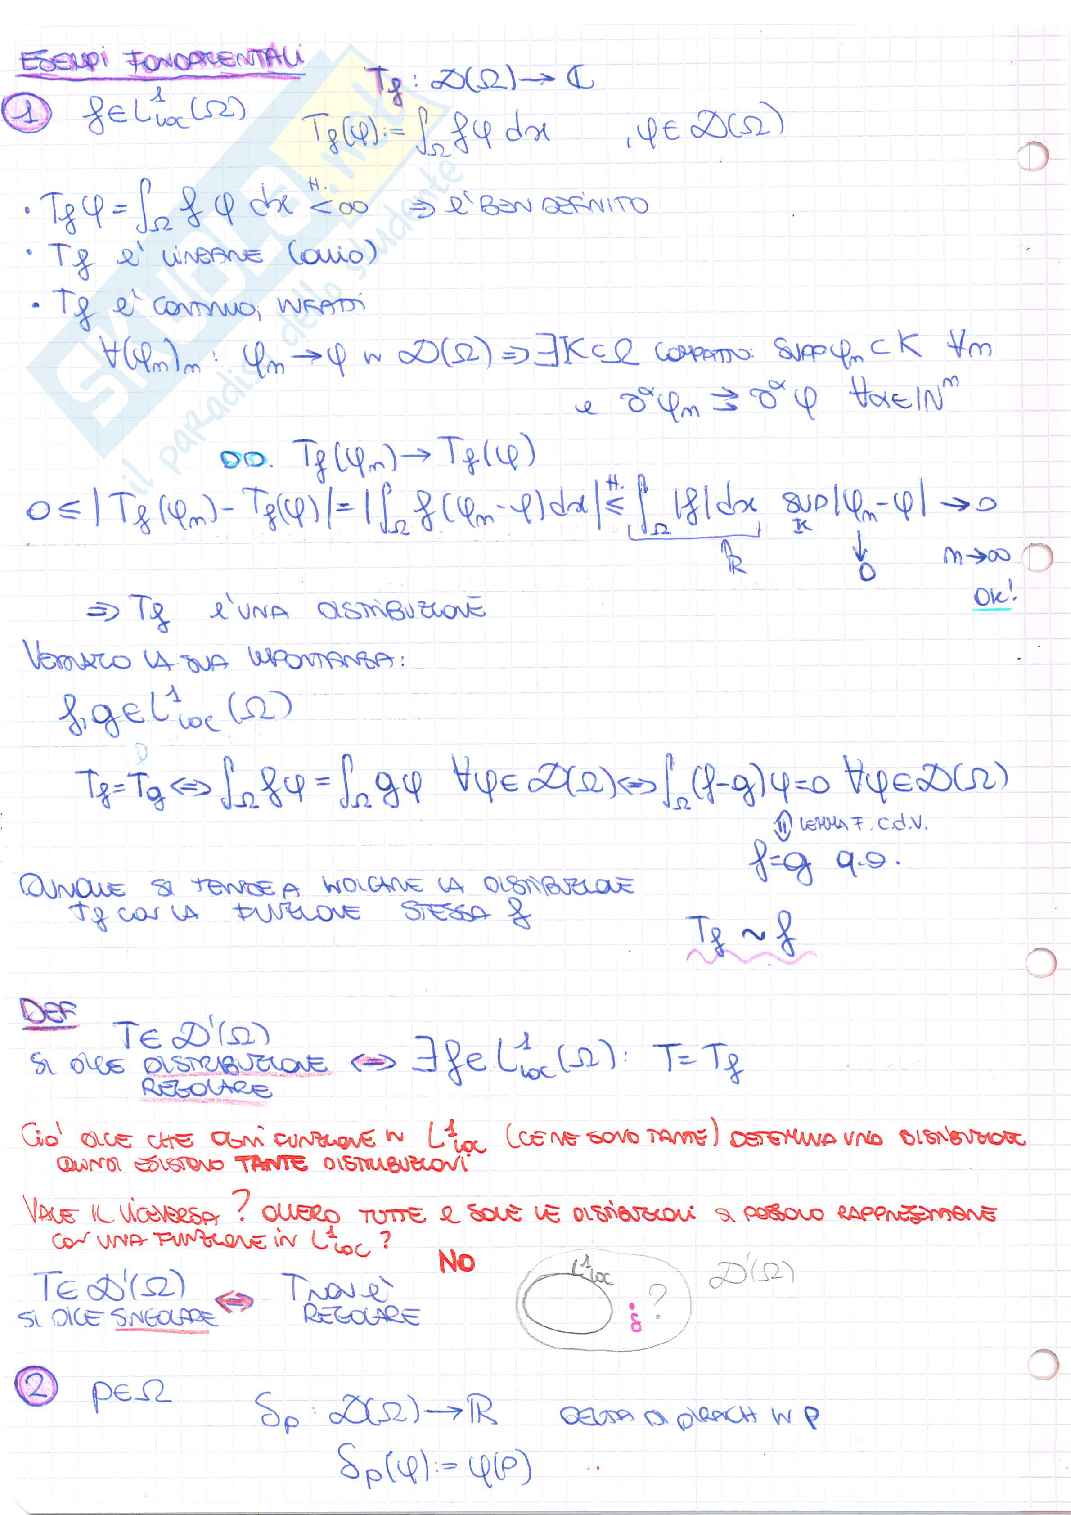 ESEMPI FONDAMENTALI
T_f : 𝒟(Ω) → ℂ
1 f ∈ L¹_loc(Ω)
T_f(φ) := ∫_Ω f φ dx , φ ∈ 𝒟(Ω)
• T_f φ = ∫_Ω f φ dx <^{H.} ∞ ⇒ E' BEN DEFINITO
• T_f E' LINEARE (OVVIO)
• T_f E' CONTINUO, INFATTI
∀(φ_n)_n : φ_n → φ IN 𝒟(Ω) ⇒ ∃K ⊂ Ω COMPATTO: SUPP φ_n ⊂ K ∀n
E ∂^α φ_n ⇉ ∂^α φ ∀α ∈ ℕ^n
DD. T_f(φ_n) → T_f(φ)
0 ≤ |T_f(φ_n) - T_f(φ)| = |∫_Ω f(φ_n - φ) dx| ≤^{H.} ∫_Ω |f| dx sup_K |φ_n - φ| → 0
ℝ 0 n→∞
OK!
⇒ T_f E' UNA DISTRIBUZIONE
VEDIAMO LA SUA IMPORTANZA:
f, g ∈ L¹_loc(Ω)
T_f = T_g ⇔ ∫_Ω fφ = ∫_Ω gφ ∀φ ∈ 𝒟(Ω) ⇔ ∫_Ω (f-g)φ = 0 ∀φ ∈ 𝒟(Ω)
⇕ LEMMA F. C.d.V.
f = g q.o.
DUNQUE SI TENDE A INDICARE LA DISTRIBUZIONE
T_f CON LA FUNZIONE STESSA f
T_f ~ f
DEF
T ∈ 𝒟'(Ω)
SI DICE DISTRIBUZIONE ⇔ ∃f ∈ L¹_loc(Ω): T = T_f
REGOLARE
CIO' DICE CHE OGNI FUNZIONE IN L¹_loc (CE NE SONO TANTE) DETERMINA UNA DISTRIBUZIONE
QUINDI ESISTONO TANTE DISTRIBUZIONI
VALE IL VICEVERSA? OVVERO TUTTE E SOLE LE DISTRIBUZIONI SI POSSONO RAPPRESENTARE
CON UNA FUNZIONE IN L¹_loc?
NO
L¹_loc 𝒟'(Ω)
T ∈ 𝒟'(Ω) ⇔ T NON E'
SI DICE SINGOLARE REGOLARE
δ ?
2 p ∈ Ω
δ_p : 𝒟(Ω) → ℝ DELTA DI DIRACH IN P
δ_p(φ) := φ(p)
SKUOLA.net
il paradiso dello studente